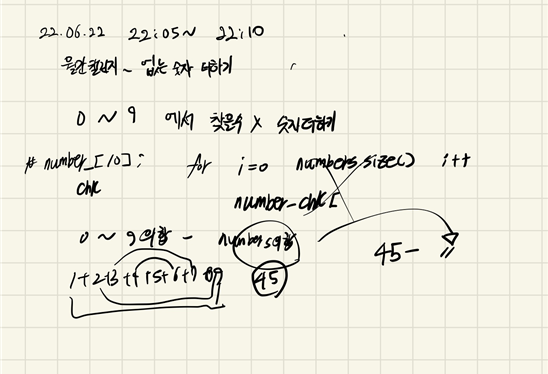 22.06.22 22:05~ 22:10
월간 챌린지~ 없는 숫자 더하기
0 ~ 9 에서 찾은수 X 숫자더하기
# number_[10]; for i=0 numbers.size() i++
chk number-chk[
0 ~ 9 의합 - numbers의합 45-
1+2+3+4+5+6+7 45